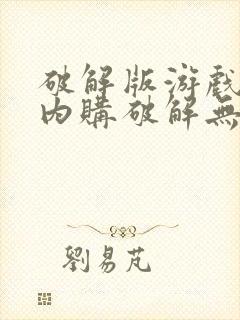 破解版游戲
內購破解無
劉易芃